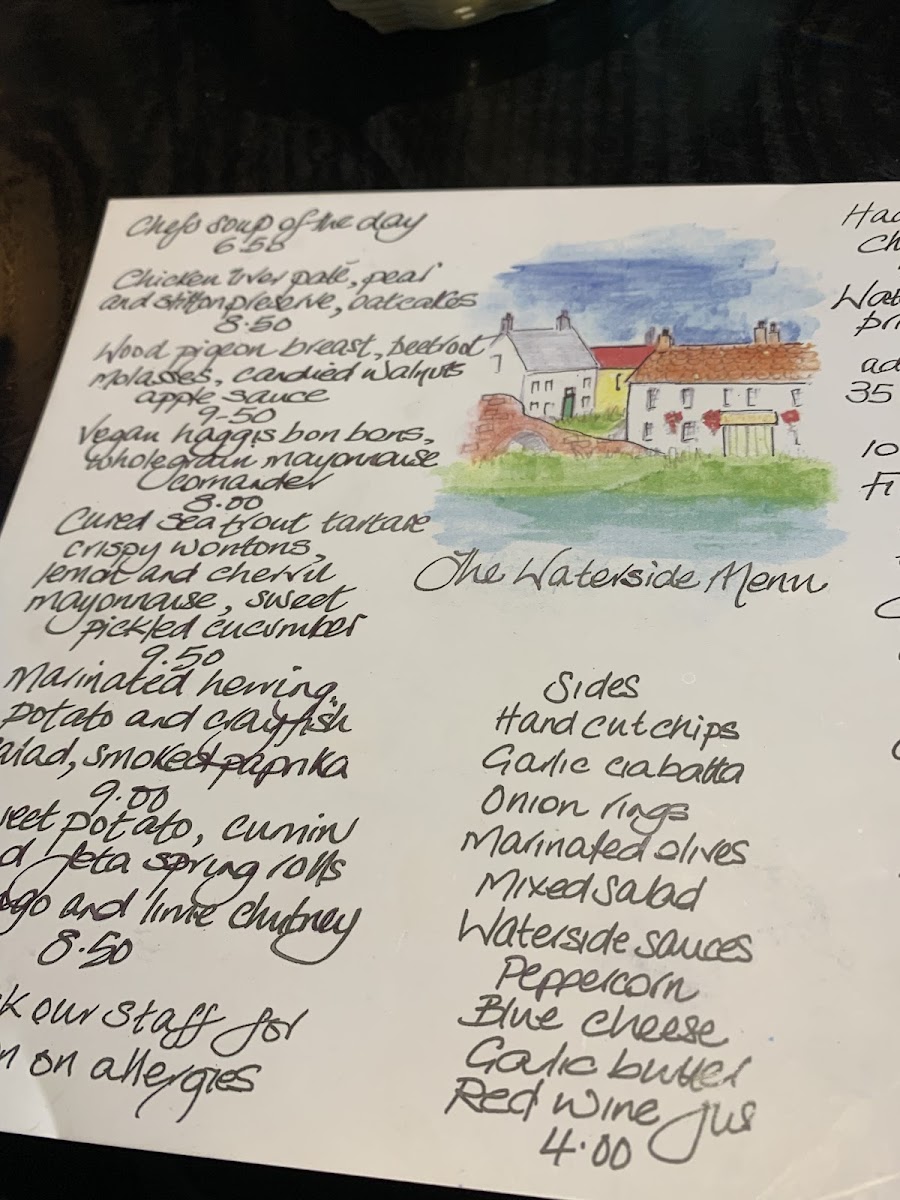 Chefs soup of the day
6.50
Chicken liver paté, pear
and stilton preserve, oatcakes
8.50
Wood pigeon breast, beetroot
molasses, candied walnuts
apple sauce
9-50
Vegan haggis bon bons,
wholegrain mayonnaise
coriander
8.00
Cured sea trout tartare
crispy wontons,
lemon and chervil
mayonnaise, sweet
pickled cucumber
9.50
Marinated herring,
potato and crayfish
salad, smoked paprika
9.00
potato, cumin
feta spring rolls
and lime chutney
8.50
our staff for
on allergies
The Waterside Menu
Sides
Hand cut chips
Garlic ciabatta
Onion rings
Marinated olives
Mixed salad
Waterside sauces
Peppercorn
Blue cheese
Garlic butter
Red wine jus
4.00
35
10